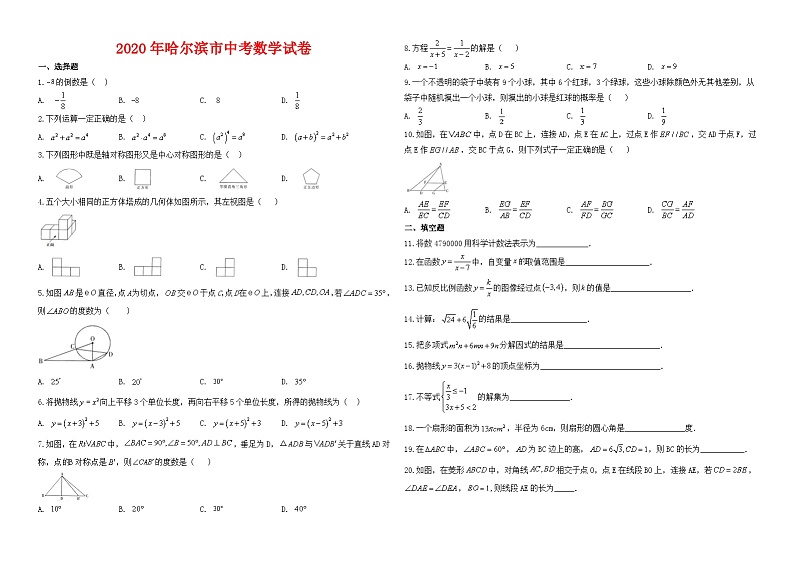 2020 年哈尔滨市中考数学试卷
一、选择题
1. -8的倒数是（ ）
A. -1/8 B. -8 C. 8 D. 1/8
2.下列运算一定正确的是（ ）
A. a²+a²=a⁴ B. a²·a⁴=a⁸ C. (a²)⁴=a⁸ D. (a+b)²=a²+b²
3.下列图形中既是轴对称图形又是中心对称图形的是（ ）
A. B. C. D.
扇形 正方形 等腰直角三角形 正五边形
4.五个大小相同的正方体塔成的几何体如图所示，其左视图是（ ）
A. B. C. D.
5.如图AB是⊙O直径,点A为切点，OB交⊙O于点C,点D在⊙O上,连接AD,CD,OA,若∠ADC=35°,
则∠ABO的度数为（ ）
A. 25° B. 20° C. 30° D. 35°
6.将抛物线y=x²向上平移3个单位长度，再向右平移5个单位长度，所得的抛物线为（ ）
A. y=(x+3)²+5 B. y=(x-3)²+5 C. y=(x+5)²+3 D. y=(x-5)²+3
7.如图，在Rt∨ABC中，∠BAC=90°,∠B=50°,AD⊥BC，垂足为D，△ADB与∨ADB'关于直线AD对
称，点的B对称点是B'，则∠CAB'的度数是（ ）
A. 10° B. 20° C. 30° D. 40°
8.方程2/(x+5)=1/(x-2)的解是（ ）
A. x=-1 B. x=5 C. x=7 D. x=9
9.一个不透明的袋子中装有9个小球，其中6个红球，3个绿球，这些小球除颜色外无其他差别，从
袋子中随机摸出一个小球，则摸出的小球是红球的概率是（ ）
A. 2/3 B. 1/2 C. 1/3 D. 1/9
10.如图，在∨ABC中，点D在BC上，连接AD，点E在AC上，过点E作EF//BC，交AD于点F，过
点E作EG//AB，交BC于点G，则下列式子一定正确的是（ ）
A. AE/EC=EF/CD B. EG/AB=EF/CD C. AF/FD=BG/GC D. CG/BC=AF/AD
二、填空题
11.将数4790000用科学计数法表示为____________.
12.在函数y=x/(x-7)中，自变量x的取值范围是____________________.
13.已知反比例函数y=k/x的图像经过点(-3,4)，则k的值是____________________.
14.计算：√24+6√(1/6)的结果是____________________.
15.把多项式m²n+6mn+9n分解因式的结果是________________________.
16.抛物线y=3(x-1)²+8的顶点坐标为____________________________
17.不等式{x/3≤-1 3x+5<2的解集为________________.
18.一个扇形的面积为13πcm²，半径为6cm，则扇形的圆心角是______________度.
19.在△ABC中，∠ABC=60°，AD为BC边上的高，AD=6√3,CD=1，则BC的长为___________.
20.如图，在菱形ABCD中，对角线AC,BD相交于点O，点E在线段BO上，连接AE，若CD=2BE，
∠DAE=∠DEA，EO=1，则线段AE的长为_____.